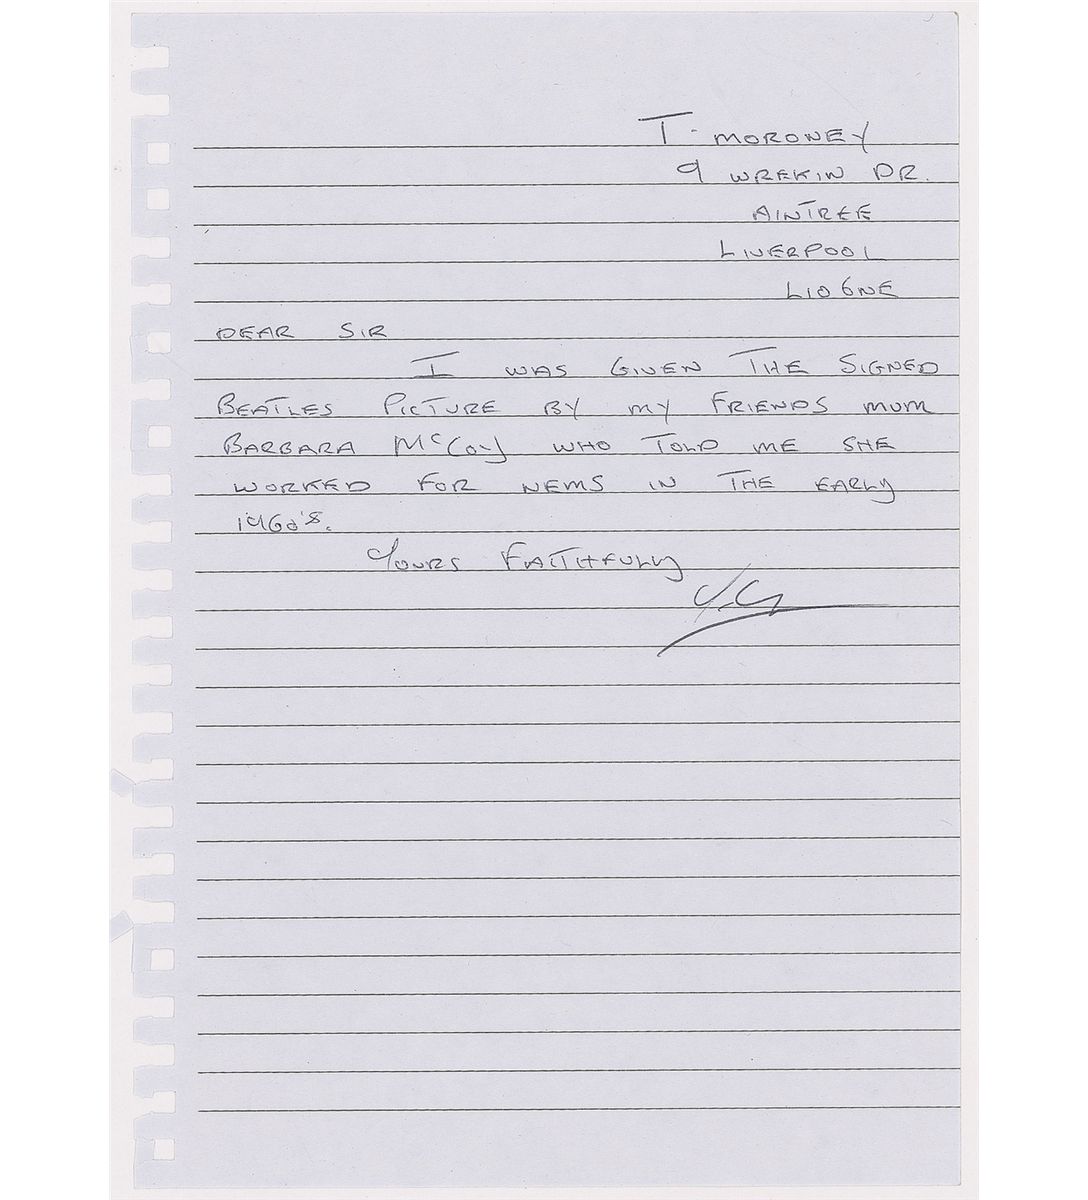 T. MORONEY
9 WREKIN DR.
AINTREE
LIVERPOOL
L10 6NE
DEAR SIR
I WAS GIVEN THE SIGNED
BEATLES PICTURE BY MY FRIENDS MUM
BARBARA McCoy WHO TOLD ME SHE
WORKED FOR NEMS IN THE EARLY
1960's.
YOURS FAITHFULLY